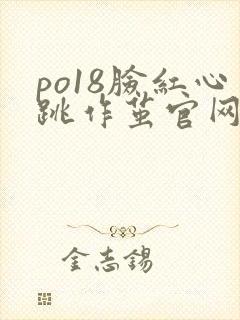 po18脸红心
跳作茧官网
金志锡